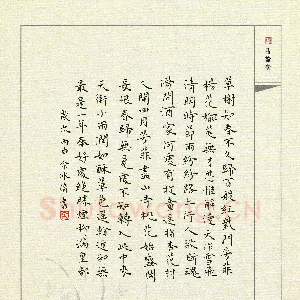 草樹知春不久歸百般紅紫鬥芳菲
楊花榆莢無才思惟解漫天作雪飛
清明時節雨紛紛路上行人欲斷魂
借問酒家何處有牧童遙指杏花村
人間四月芳菲盡山寺桃花始盛開
長恨春歸無覓處不知轉入此中來
天街小雨潤如酥草色遙看近卻無
最是一年春好處絕勝煙柳滿皇都
歲次丙申